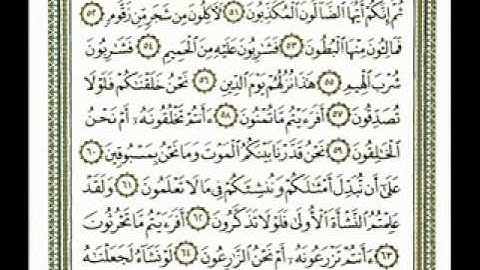 ثُمَّ إِنَّكُمْ أَيُّهَا ٱلضَّآلُّونَ ٱلْمُكَذِّبُونَ ٥١ لَءَاكِلُونَ مِن شَجَرٍ مِّن زَقُّومٍ ٥٢
فَمَالِـُٔونَ مِنْهَا ٱلْبُطُونَ ٥٣ فَشَٰرِبُونَ عَلَيْهِ مِنَ ٱلْحَمِيمِ ٥٤ فَشَٰرِبُونَ
شُرْبَ ٱلْهِيمِ ٥٥ هَٰذَا نُزُلُهُمْ يَوْمَ ٱلدِّينِ ٥٦ نَحْنُ خَلَقْنَٰكُمْ فَلَوْلَا
تُصَدِّقُونَ ٥٧ أَفَرَءَيْتُم مَّا تُمْنُونَ ٥٨ ءَأَنتُمْ تَخْلُقُونَهُۥٓ أَمْ نَحْنُ
ٱلْخَٰلِقُونَ ٥٩ نَحْنُ قَدَّرْنَا بَيْنَكُمُ ٱلْمَوْتَ وَمَا نَحْنُ بِمَسْبُوقِينَ ٦٠
عَلَىٰٓ أَن نُّبَدِّلَ أَمْثَٰلَكُمْ وَنُنشِئَكُمْ فِى مَا لَا تَعْلَمُونَ ٦١ وَلَقَدْ
عَلِمْتُمُ ٱلنَّشْأَةَ ٱلْأُولَىٰ فَلَوْلَا تَذَكَّرُونَ ٦٢ أَفَرَءَيْتُم مَّا تَحْرُثُونَ
٦٣ ءَأَنتُمْ تَزْرَعُونَهُۥٓ أَمْ نَحْنُ ٱلزَّٰرِعُونَ ٦٤ لَوْ نَشَآءُ لَجَعَلْنَٰهُ